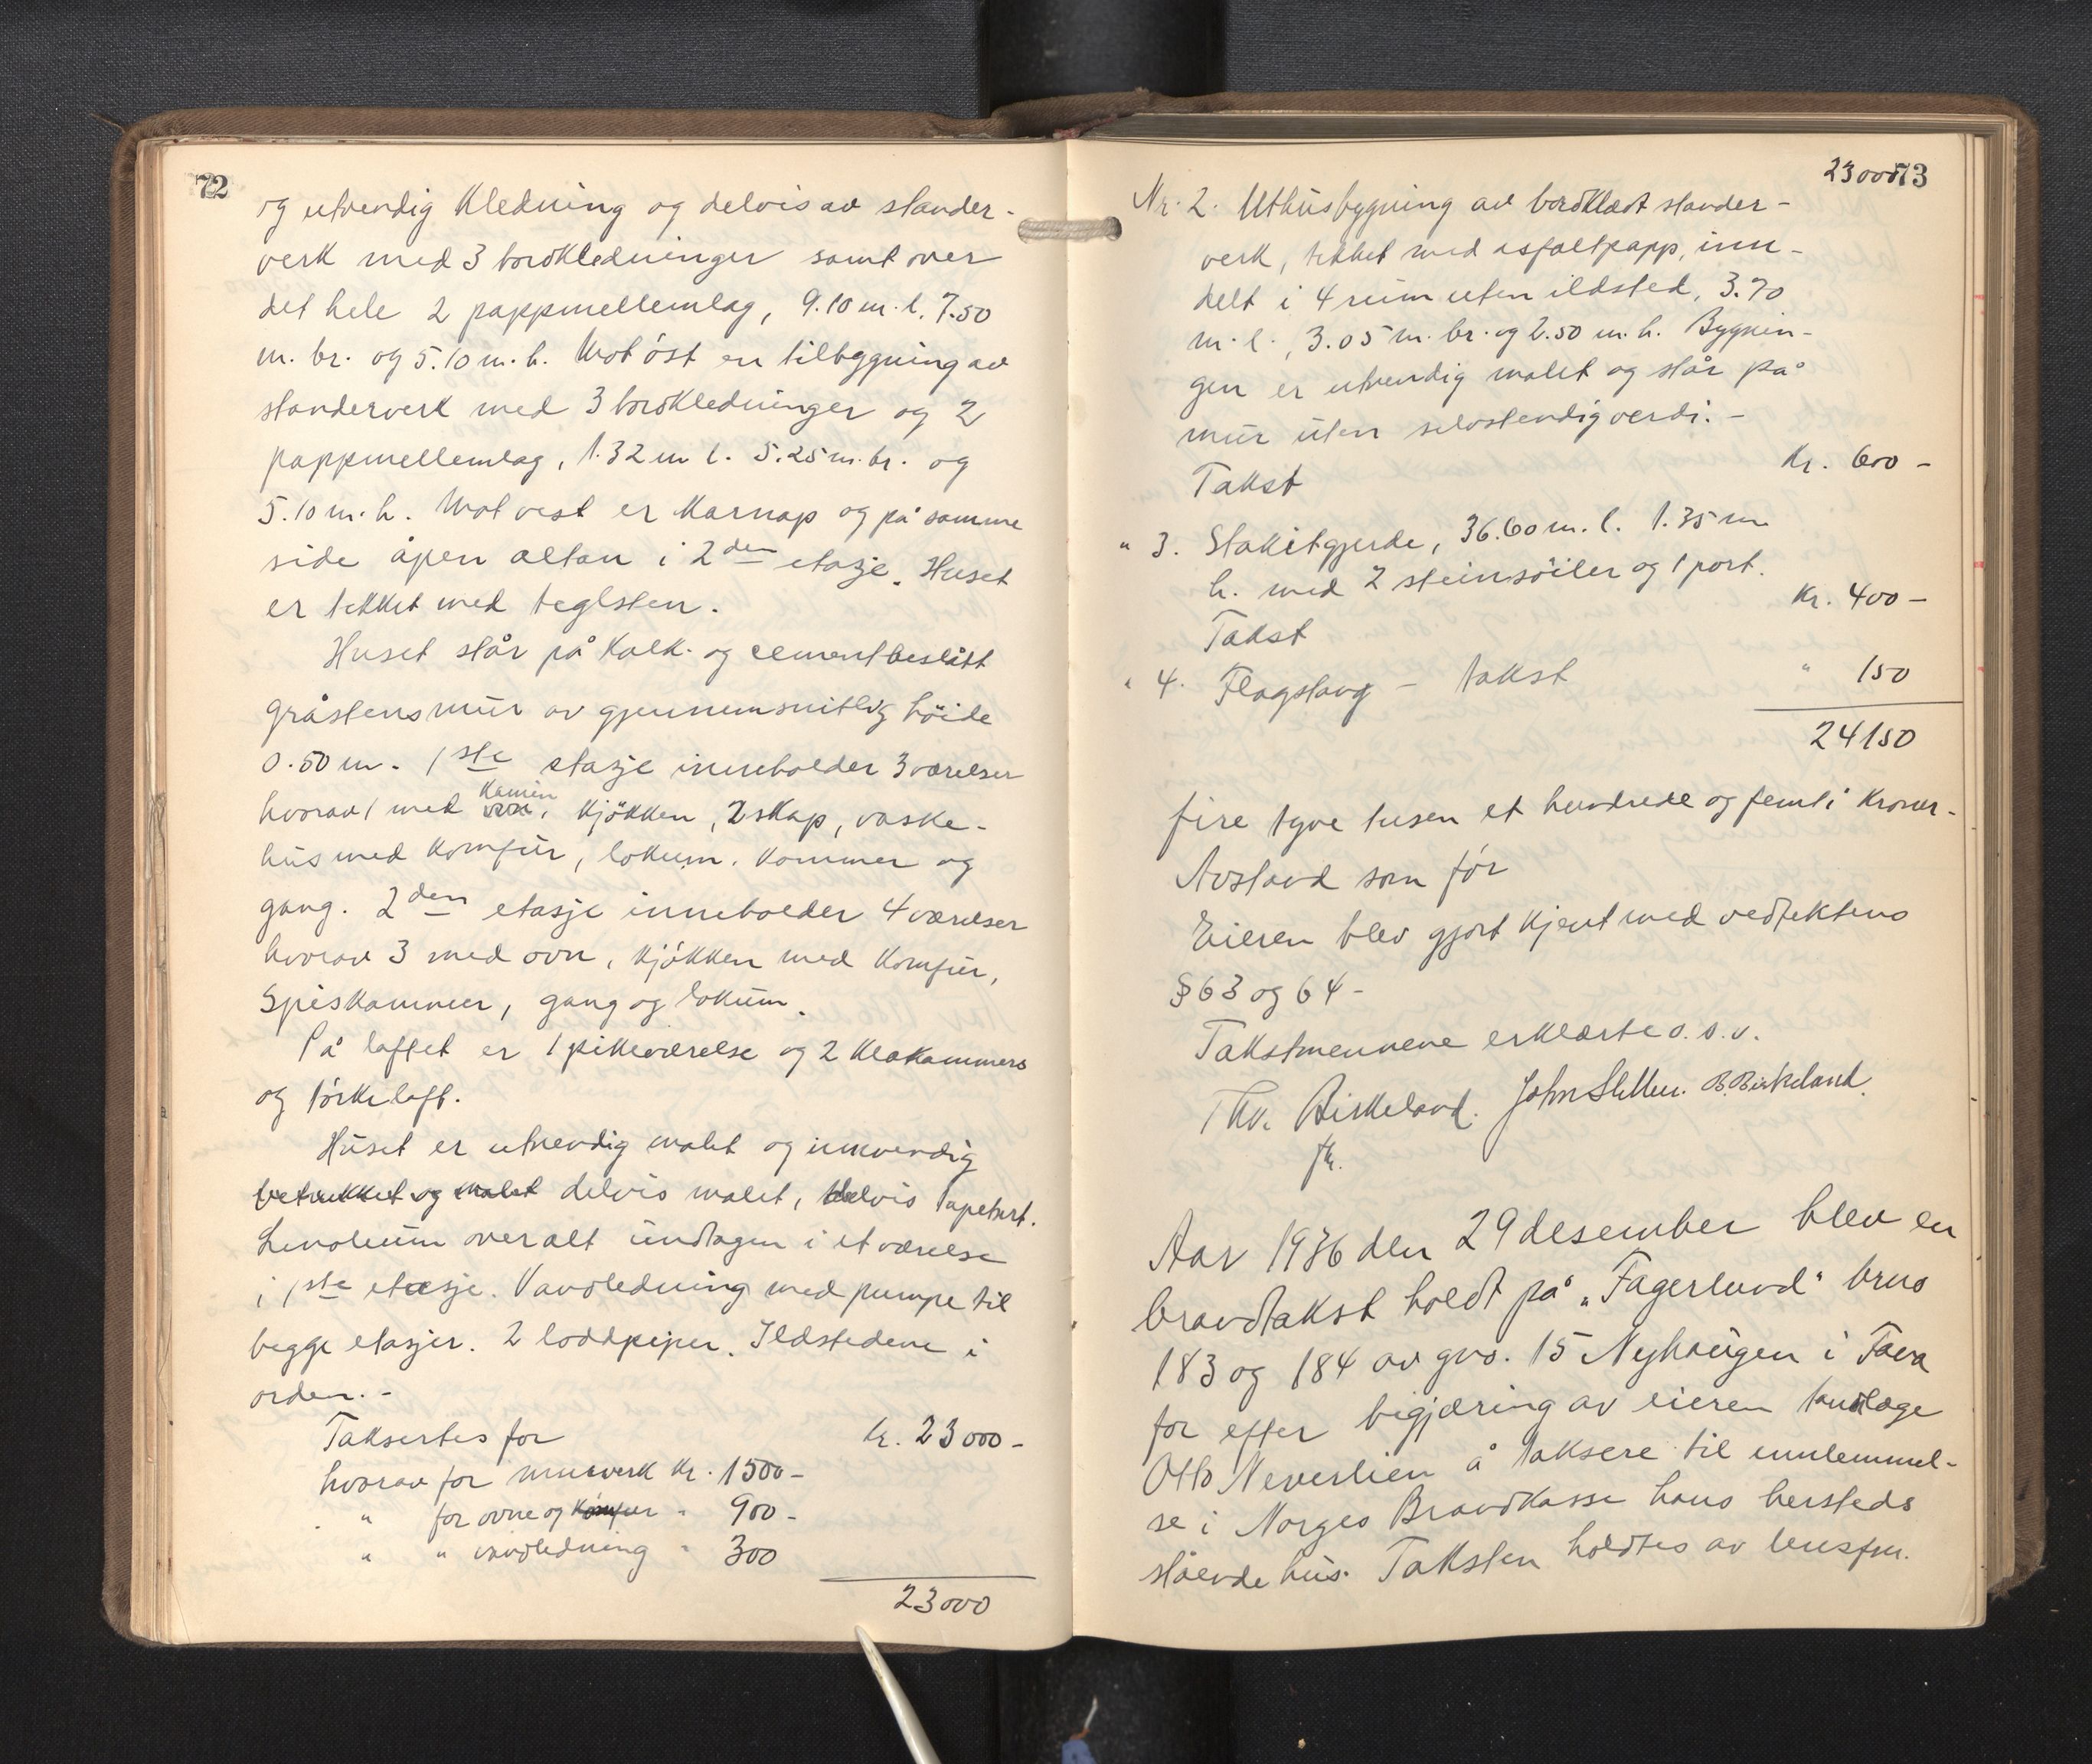 72
og utvendig Kledning og delvis av stander-
verk med 3 bordkledninger samt over
det hele 2 pappmellemlag, 9.10 m. l. 7.50
m. br. og 5.10 m. h. Mot öst en tilbygning av
standerverk med 3 bordkledninger og 2
pappmellemlag, 1.32 m l. 5.25 m. br. og
5.10 m. h. Mot vest er Karnap og på samme
side åpen altan i 2den etasje. Huset
er tekket med teglsten.
Huset står på Kalk- og cementbeslått
gråstensmur av gjennemsnitlig höide
0.50 m. 1ste etasje inneholder 3 værelser
hvorav 1 med ovn Kamin, Kjökken, 2 skap, vaske-
hus med Komfur, lokum. Kammer og
gang. 2den etasje inneholder 4 værelser
hvorav 3 med ovn, Kjökken med Komfur,
Spiskammer, gang og lokum.
På loftet er 1 pikeværelse og 2 Klækammers
og törkeloft.
Huset er utvendig malet og innvendig
betrukket og malet delvis malet, delvis tapetsert.
Linoleum overalt undtagen i et værelse
i 1ste etasje. Vandledning med pumpe til
begge etasjer. 2 loddpiper. Ildstedene i
orden. -
Taksertes for Kr. 23000 -
hvorav for murverk Kr. 1500 -
" for ovne og Komfur " 900 -
" " vandledning " 300
23000
23000 73
Nr. 2. Uthusbygning av bordklædt stander-
verk, tekket med asfaltpapp, inn-
delt i 4 rum uten ildsted, 3.70
m. l., 3.05 m. br. og 2.50 m. h. Bygnin-
gen er utvendig malet og står på
mur uten selvstendig verdi. -
Takst Kr. 600 -
" 3. Stakitgjerde, 36.60 m. l. 1.35 m
h. med 2 steinsöiler og 1 port.
Takst Kr. 400 -
" 4. Flagstang - takst " 150
24150
fire tyve tusen et hundrede og femti Kroner-
Avstand som för
Eieren blev gjort Kjent med vedtektens
§ 63 og 64 -
Takstmennene erklærte o. s. v.
Thv. Birkeland. John Sletten. B. Birkeland.
fhr.
Aar 1936 den 29 desember blev en
brandtakst holdt på "Fagerlund" brno
183 og 184 av gno. 15 Nyhaugen i Fana
for efter begjæring av eieren tandlæge
Otto Neverlien å taksere til innlemmel-
se i Norges Brandkasse hans hersteds
stående hus. Taksten holdtes av lensm.